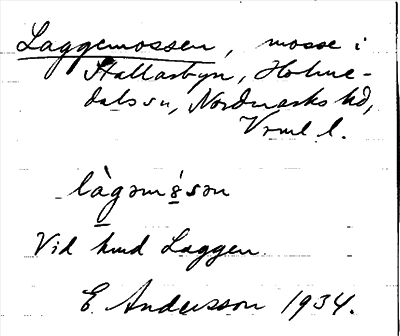 Laggemossen, mosse i
Stallarbyn, Holme-
dals sn, Nordmarks hd,
Vrml l.
làgəmɔsən
Vid hmd Laggen.
E. Andersson 1934.